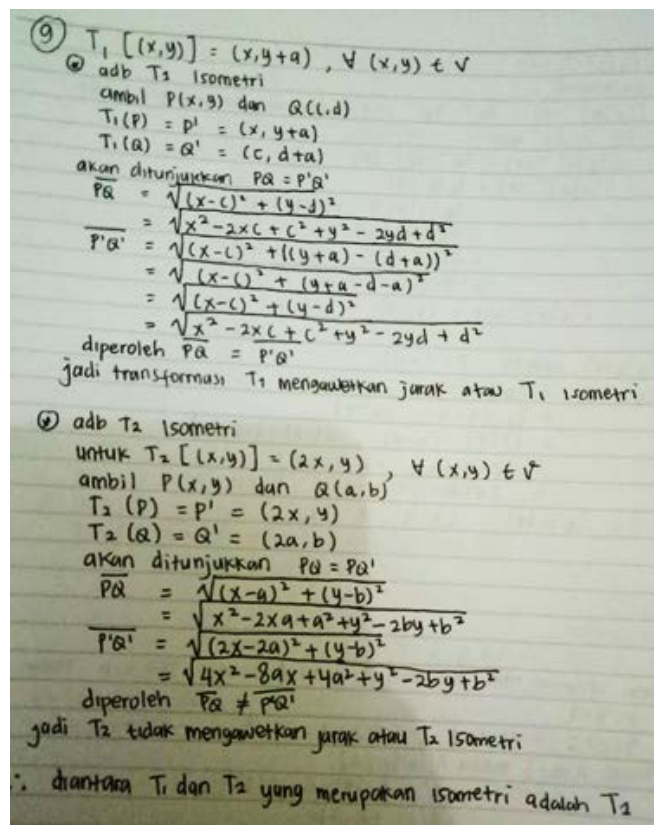 9 T₁ [(x,y)] = (x,y+a) , ∀ (x,y) ∈ V
adb T₁ Isometri
ambil P(x,y) dan Q(c,d)
T₁(P) = P' = (x, y+a)
T₁(Q) = Q' = (c, d+a)
akan ditunjukkan PQ = P'Q'
PQ = √(x-c)² + (y-d)²
= √x² - 2xc + c² + y² - 2yd + d²
P'Q' = √(x-c)² + ((y+a) - (d+a))²
= √(x-c)² + (y+a-d-a)²
= √(x-c)² + (y-d)²
= √x² - 2xc + c² + y² - 2yd + d²
diperoleh PQ = P'Q'
jadi transformasi T₁ mengawetkan jarak atau T₁ isometri
adb T₂ Isometri
untuk T₂ [(x,y)] = (2x, y) , ∀ (x,y) ∈ V
ambil P(x,y) dan Q(a,b)
T₂ (P) = P' = (2x, y)
T₂ (Q) = Q' = (2a, b)
akan ditunjukkan PQ = PQ'
PQ = √(x-a)² + (y-b)²
= √x² - 2xa + a² + y² - 2by + b²
P'Q' = √(2x-2a)² + (y-b)²
= √4x² - 8ax + 4a² + y² - 2by + b²
diperoleh PQ ≠ P'Q'
jadi T₂ tidak mengawetkan jarak atau T₂ Isometri
∴ diantara T₁ dan T₂ yang merupakan isometri adalah T₁